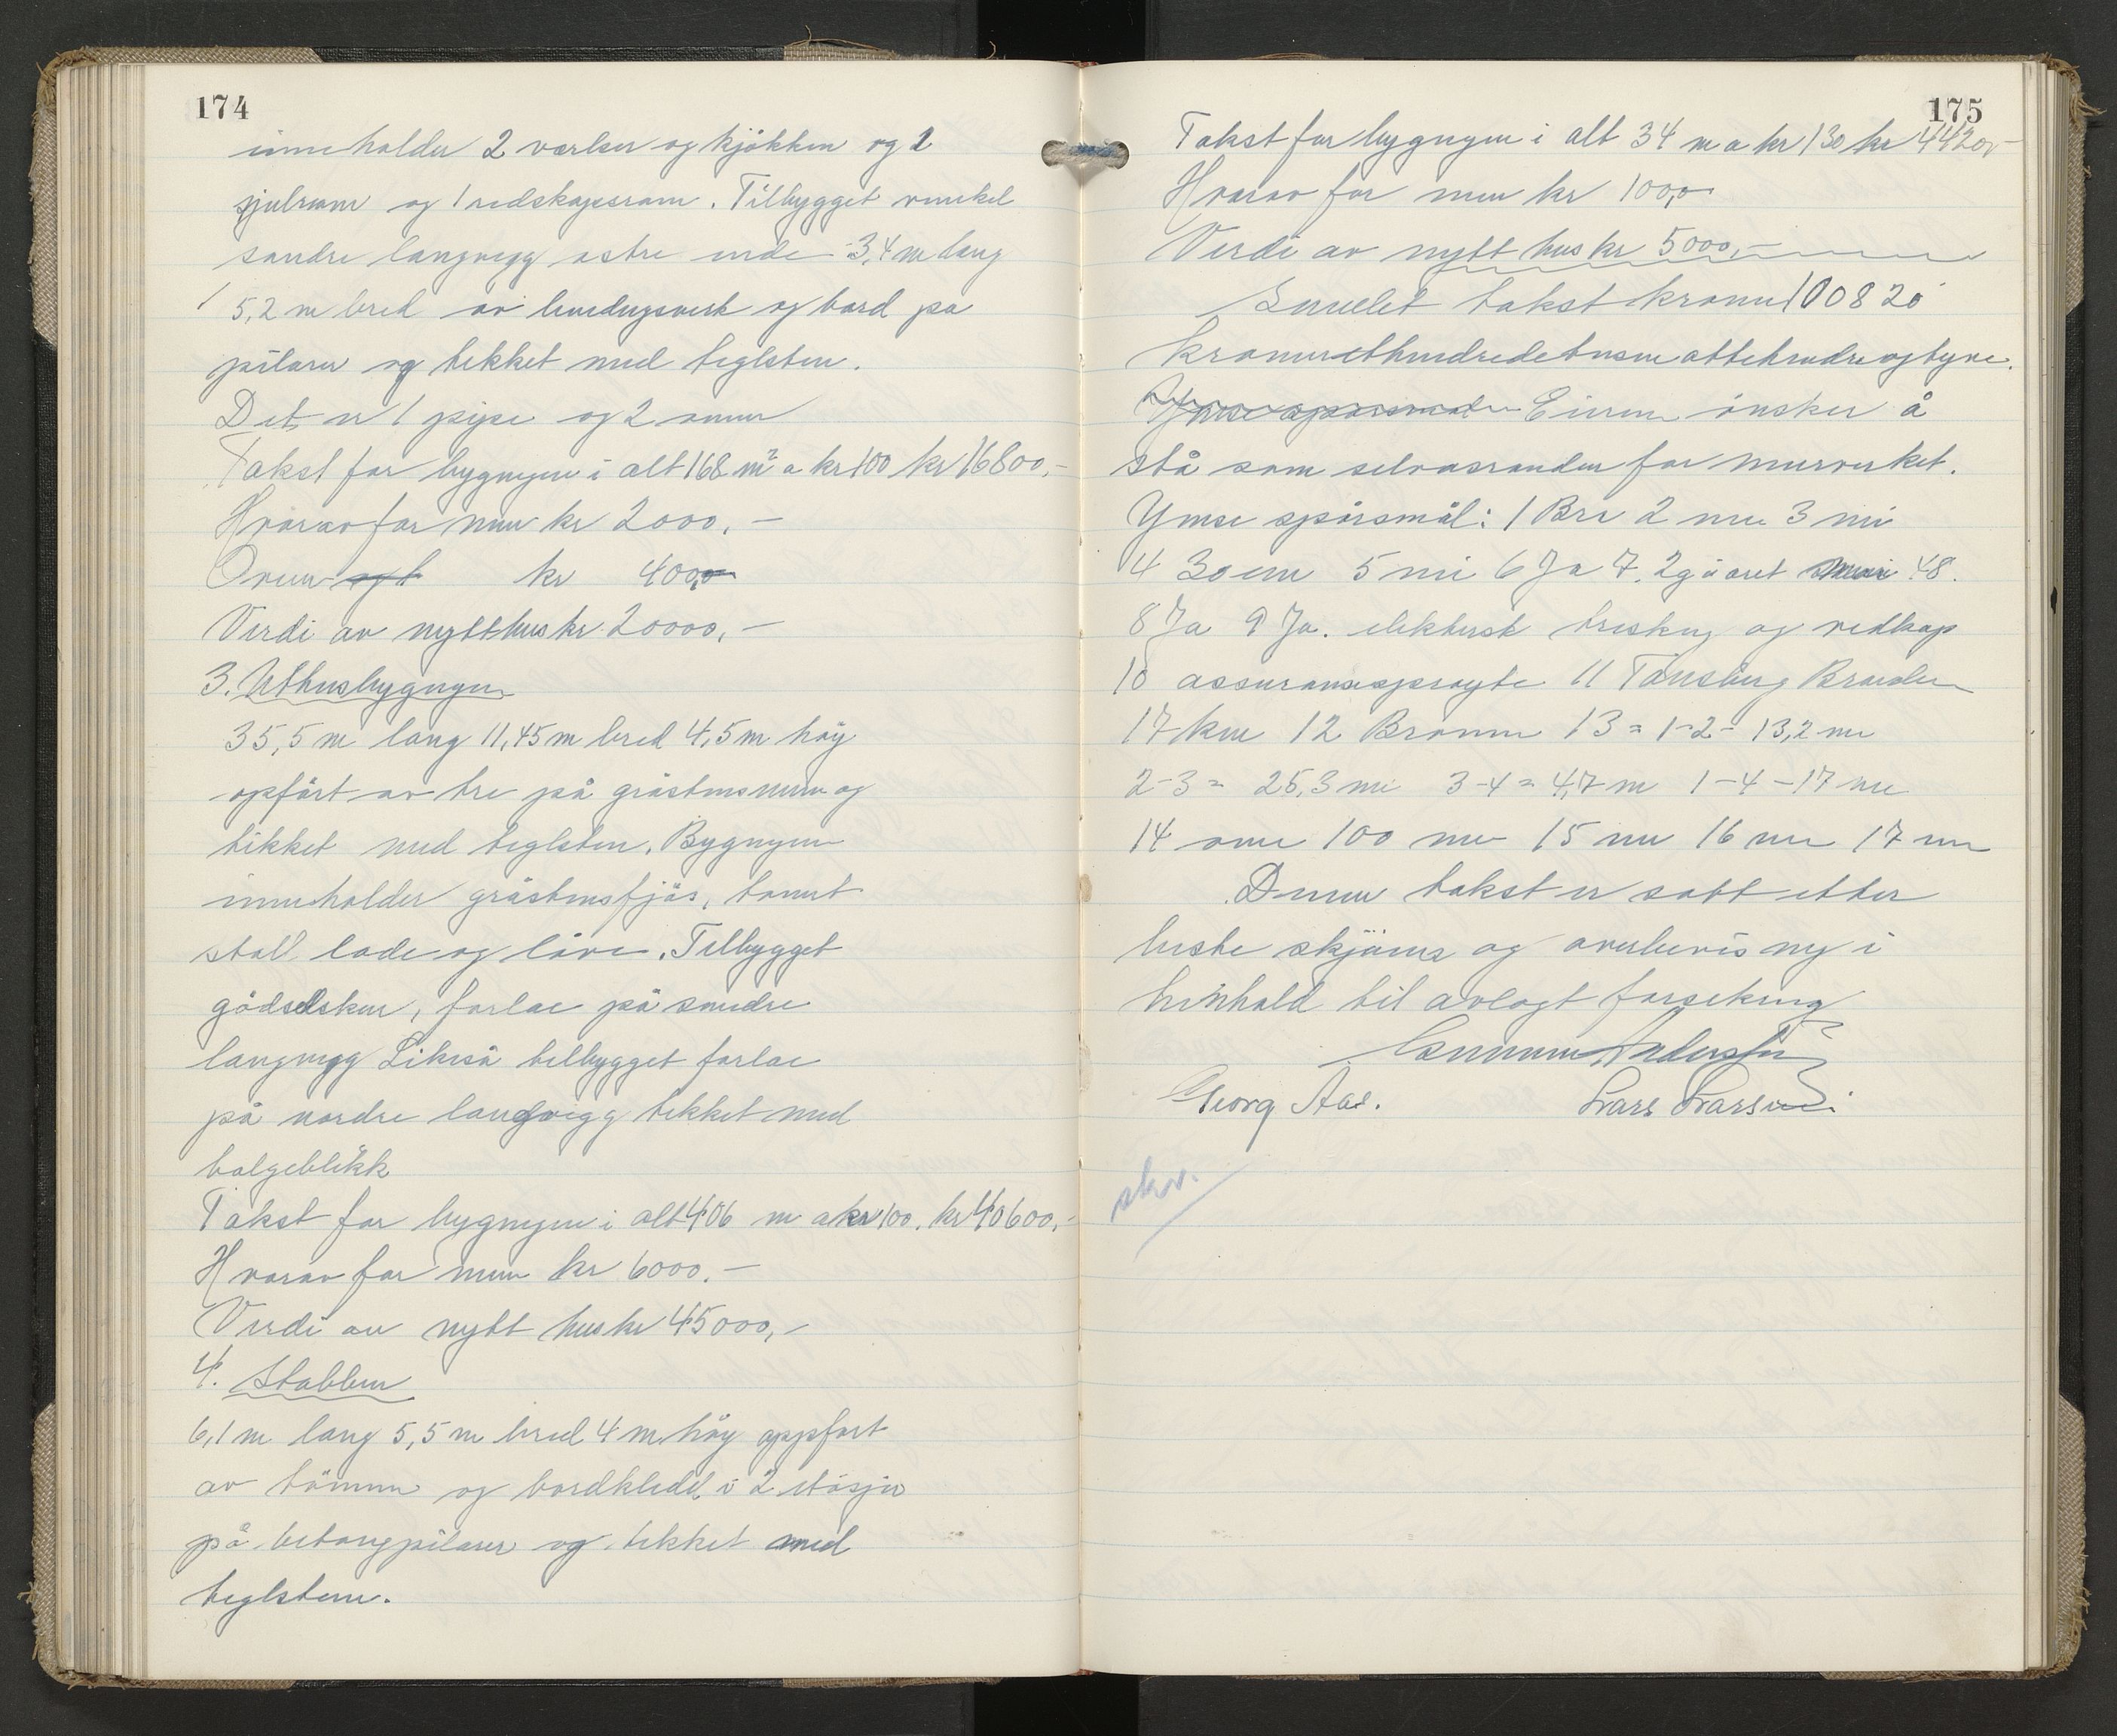 174
inneholder 2 værlser og kjøkken og 1
og 1 redskapsrom. Tilbygget vinkel
søndre langvegg østre ende 3,4 m lang
5,2 m bred av bindingsverk og bord på
pilarer og tekket med teglsten.
Det er 1 pipe og 2 ovner
Takst for bygningen i alt 168 m² a kr 100 kr 16800,-
Hvorav for mur kr 2000,-
Ovner kr 400,-
Verdi av nytt hus kr 20000,-
3. Uthusbygnygen
35,5 m lang 11,45 m bred 4,5 m høy
opført av tre på gråstensmur og
tekket med teglsten. Bygnygen
inneholder gråstensfjøs, tomt
stall lade og låve. Tilbygget
gödselskur, forlae på søndre
langvegg Likeså tilbygget forlae
på nordre langvegg tekket med
bølgeblikk
Takst for bygnygen i alt 406 m a kr 100. kr 40600,-
Hvorav for mur kr 6000.-
Verdi av nytt hus kr 45000,-
4. Stabbur
6,1 m lang 5,5 m bred 4 m høy oppført
av tömmer og bordkledd i 2 etasjer
på betongpilarer og tekket med
teglsten.
175
Takst for bygnygen i alt 34 m a kr 130 kr 4420,-
Hvorav for mur kr 100,-
Verdi av nytt hus kr 5000,-
Samlet takst kroner 100820
kroneretthundredetusenattehundreogtyve.
Eieren ønsker å
stå som selvassurandør for murverket.
Ymse spörsmål: 1 Bra 2 nei 3 nei
4 30 cm 5 nei 6 Ja 7. 2 g i året 48.
8 Ja 9 Ja. elektrisk tresking og vedkap
10 assuransesprøyte 11 Tönsberg Branden
17 km 12 Brønn 13 = 1-2 = 13,2 m
2-3 = 25,3 m 3-4 = 4,7 m 1-4 - 17 m
14 over 100 m 15 nei 16 nei 17 nei
Denne takst er satt etter
beste skjønn og overbevisning i
henhold til avlagt forsikring
Gunnar Andersen
Georg Aas. Lars Larsen.
skr.